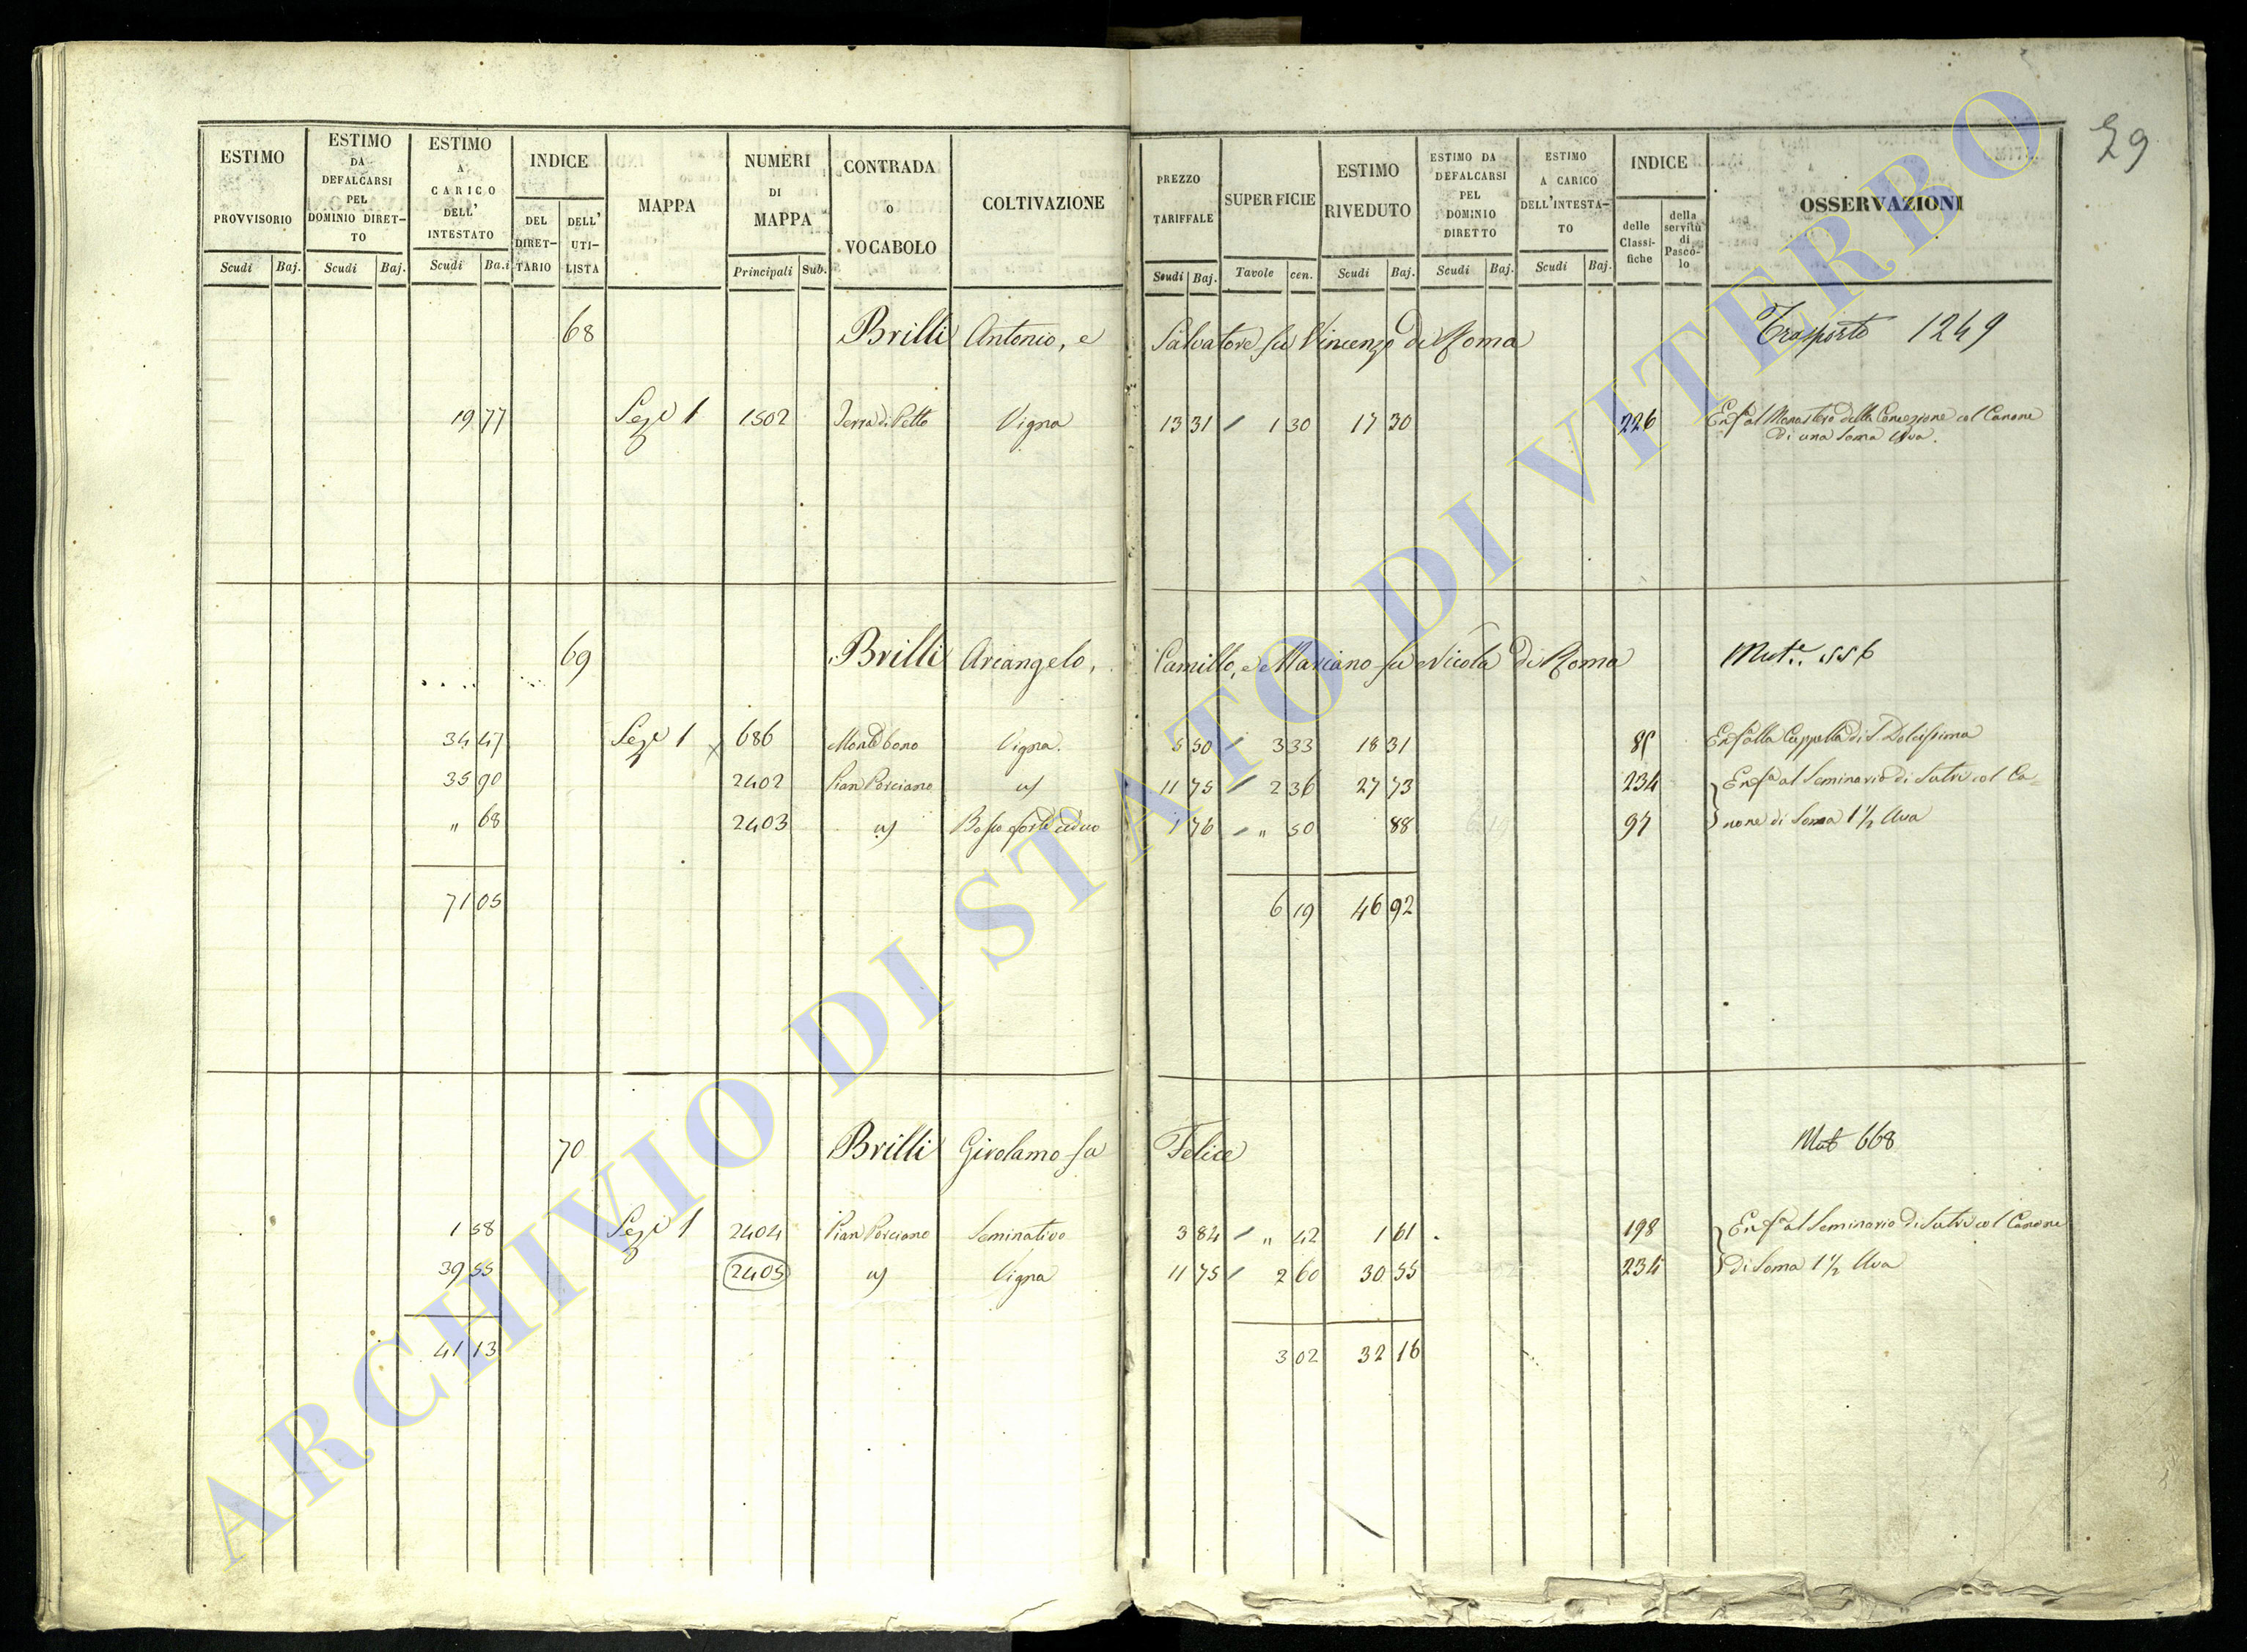 29
ESTIMO PROVVISORIO
ESTIMO DA DEFALCARSI PEL DOMINIO DIRET-TO
ESTIMO A CARICO DELL' INTESTATO
INDICE
DEL DIRET-TARIO
DELL' UTI-LISTA
MAPPA
NUMERI DI MAPPA
CONTRADA O VOCABOLO
COLTIVAZIONE
PREZZO TARIFFALE
SUPERFICIE
ESTIMO RIVEDUTO
ESTIMO DA DEFALCARSI PEL DOMINIO DIRETTO
ESTIMO A CARICO DELL'INTESTA-TO
INDICE
delle Classi-fiche
della servitù di Pasco-lo
OSSERVAZIONI
Scudi Baj. Scudi Baj. Scudi Ba.i Principali Sub. Scudi Baj. Tavole cen. Scudi Baj. Scudi Baj. Scudi Baj.
68 Brilli Antonio, e Salvatore fu Vincenzo di Roma Trasporto 1249
19 77 Sez.e 1 1502 Terra di Petto Vigna 13 31 / 1 30 17 30 226 Enf.a al Monastero della Concezione col Canone
di una Soma Uva.
69 Brilli Arcangelo, Camillo, e Mariano fu Nicola di Roma Mut.e 556
34 47 Sez.e 1 x 686 Vigna. 5 50 / 3 33 18 31 Enf. alla Cappella di S. Dolcissima
35 90 2402 Pian Porciano 11 75 / 2 36 27 73 234 Enf.a al Seminario di Sutri col Ca-
" 68 2403 Bosco forte ceduo 1 76 / " 50 88 97 none di Soma 1 1/2 Uva
71 05 6 19 46 92
70 Brilli Girolamo fu Felice Mut 668
1 58 Sez.e 1 2404 Pian Porciano Seminativo 3 84 / " 42 1 61 198 Enf.a al Seminario di Sutri col Canone
39 55 2405 Vigna 11 75 / 2 60 30 55 234 di Soma 1 1/2 Uva
41 13 3 02 32 16
ARCHIVIO DI STATO DI VITERBO